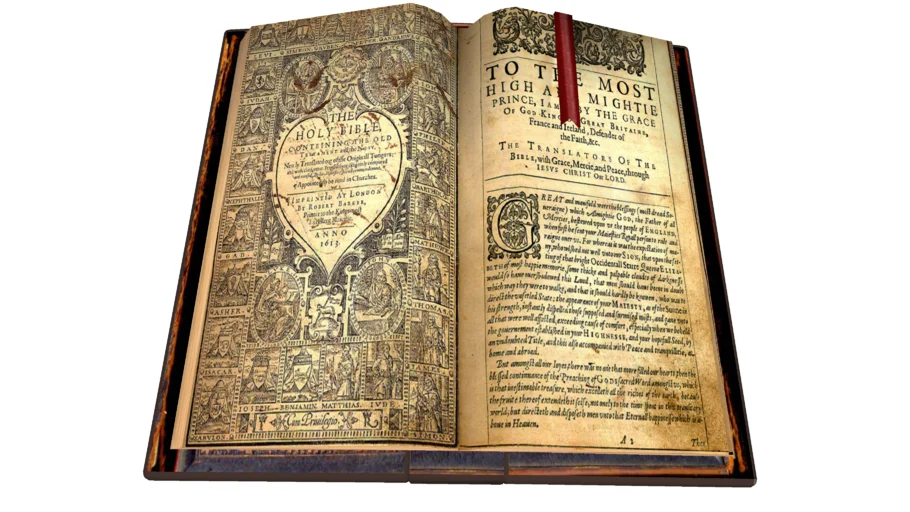 THE
HOLY BIBLE,
CONTEINING THE OLD
TESTAMENT and the NEW.
Newly Translated out of the Originall Tongues:
Appointed to be read in Churches.
IMPRINTED AT LONDON
BY ROBERT BARKER,
Printer to the Kings most
Excellent Majestie.
ANNO
1613.
LEVI.
IUDAH
DAN.
NEPHTHALI
GAD.
ASHER.
IOSEPH
BENJAMIN.
MATTHIAS.
IUDE
Cum Privilegio.
TO THE MOST
HIGH AND MIGHTIE
PRINCE, IAMES BY THE GRACE
OF GOD KING OF GREAT BRITAINE,
France and Ireland, Defender of
the Faith, &c.
THE TRANSLATORS OF THE
BIBLE, with Grace, Mercie, and Peace, through
IESVS CHRIST our LORD.
GREAT and manifold were the blessings (most dread So-
ueraigne) which Almightie GOD, the Father of all
Mercies, bestowed vpon vs the people of ENGLAND,
when first he sent your Maiesties Royall person to rule and
raigne ouer vs. For whereas it was the expectation of ma-
ny, who wished not well vnto our SION, that vpon the set-
ting of that bright Occidentall Starre Queene ELIZA-
BETH of most happie memorie, some thicke and palpable cloudes of darkenesse
would so haue ouershadowed this Land, that men should haue beene in doubt
which way they were to walke, and that it should hardly be knowen, who was to
direct the vnsetled State: the appearance of your MAIESTY, as of the Sunne in
his strength, instantly dispelled those supposed and surmised mists, and gaue vnto
all that were well affected, exceeding cause of comfort, especially when we beheld
the gouernement established in your HIGHNESSE, and your hopefull Seed, by
an vndoubted Title, and this also accompanied with Peace and tranquillitie, at
home and abroad.
But amongst all our Ioyes there was no one that more filled our hearts, then the
blessed continuance of the Preaching of GODS sacred Word amongst vs, which
is that inestimable treasure, which excelleth all the riches of the earth, because
the fruite thereof extendeth it selfe, not onely to the time spent in this transitory
world, but directeth and disposeth men vnto that Eternall happinesse which is a-
boue in Heauen.
A 2
Then